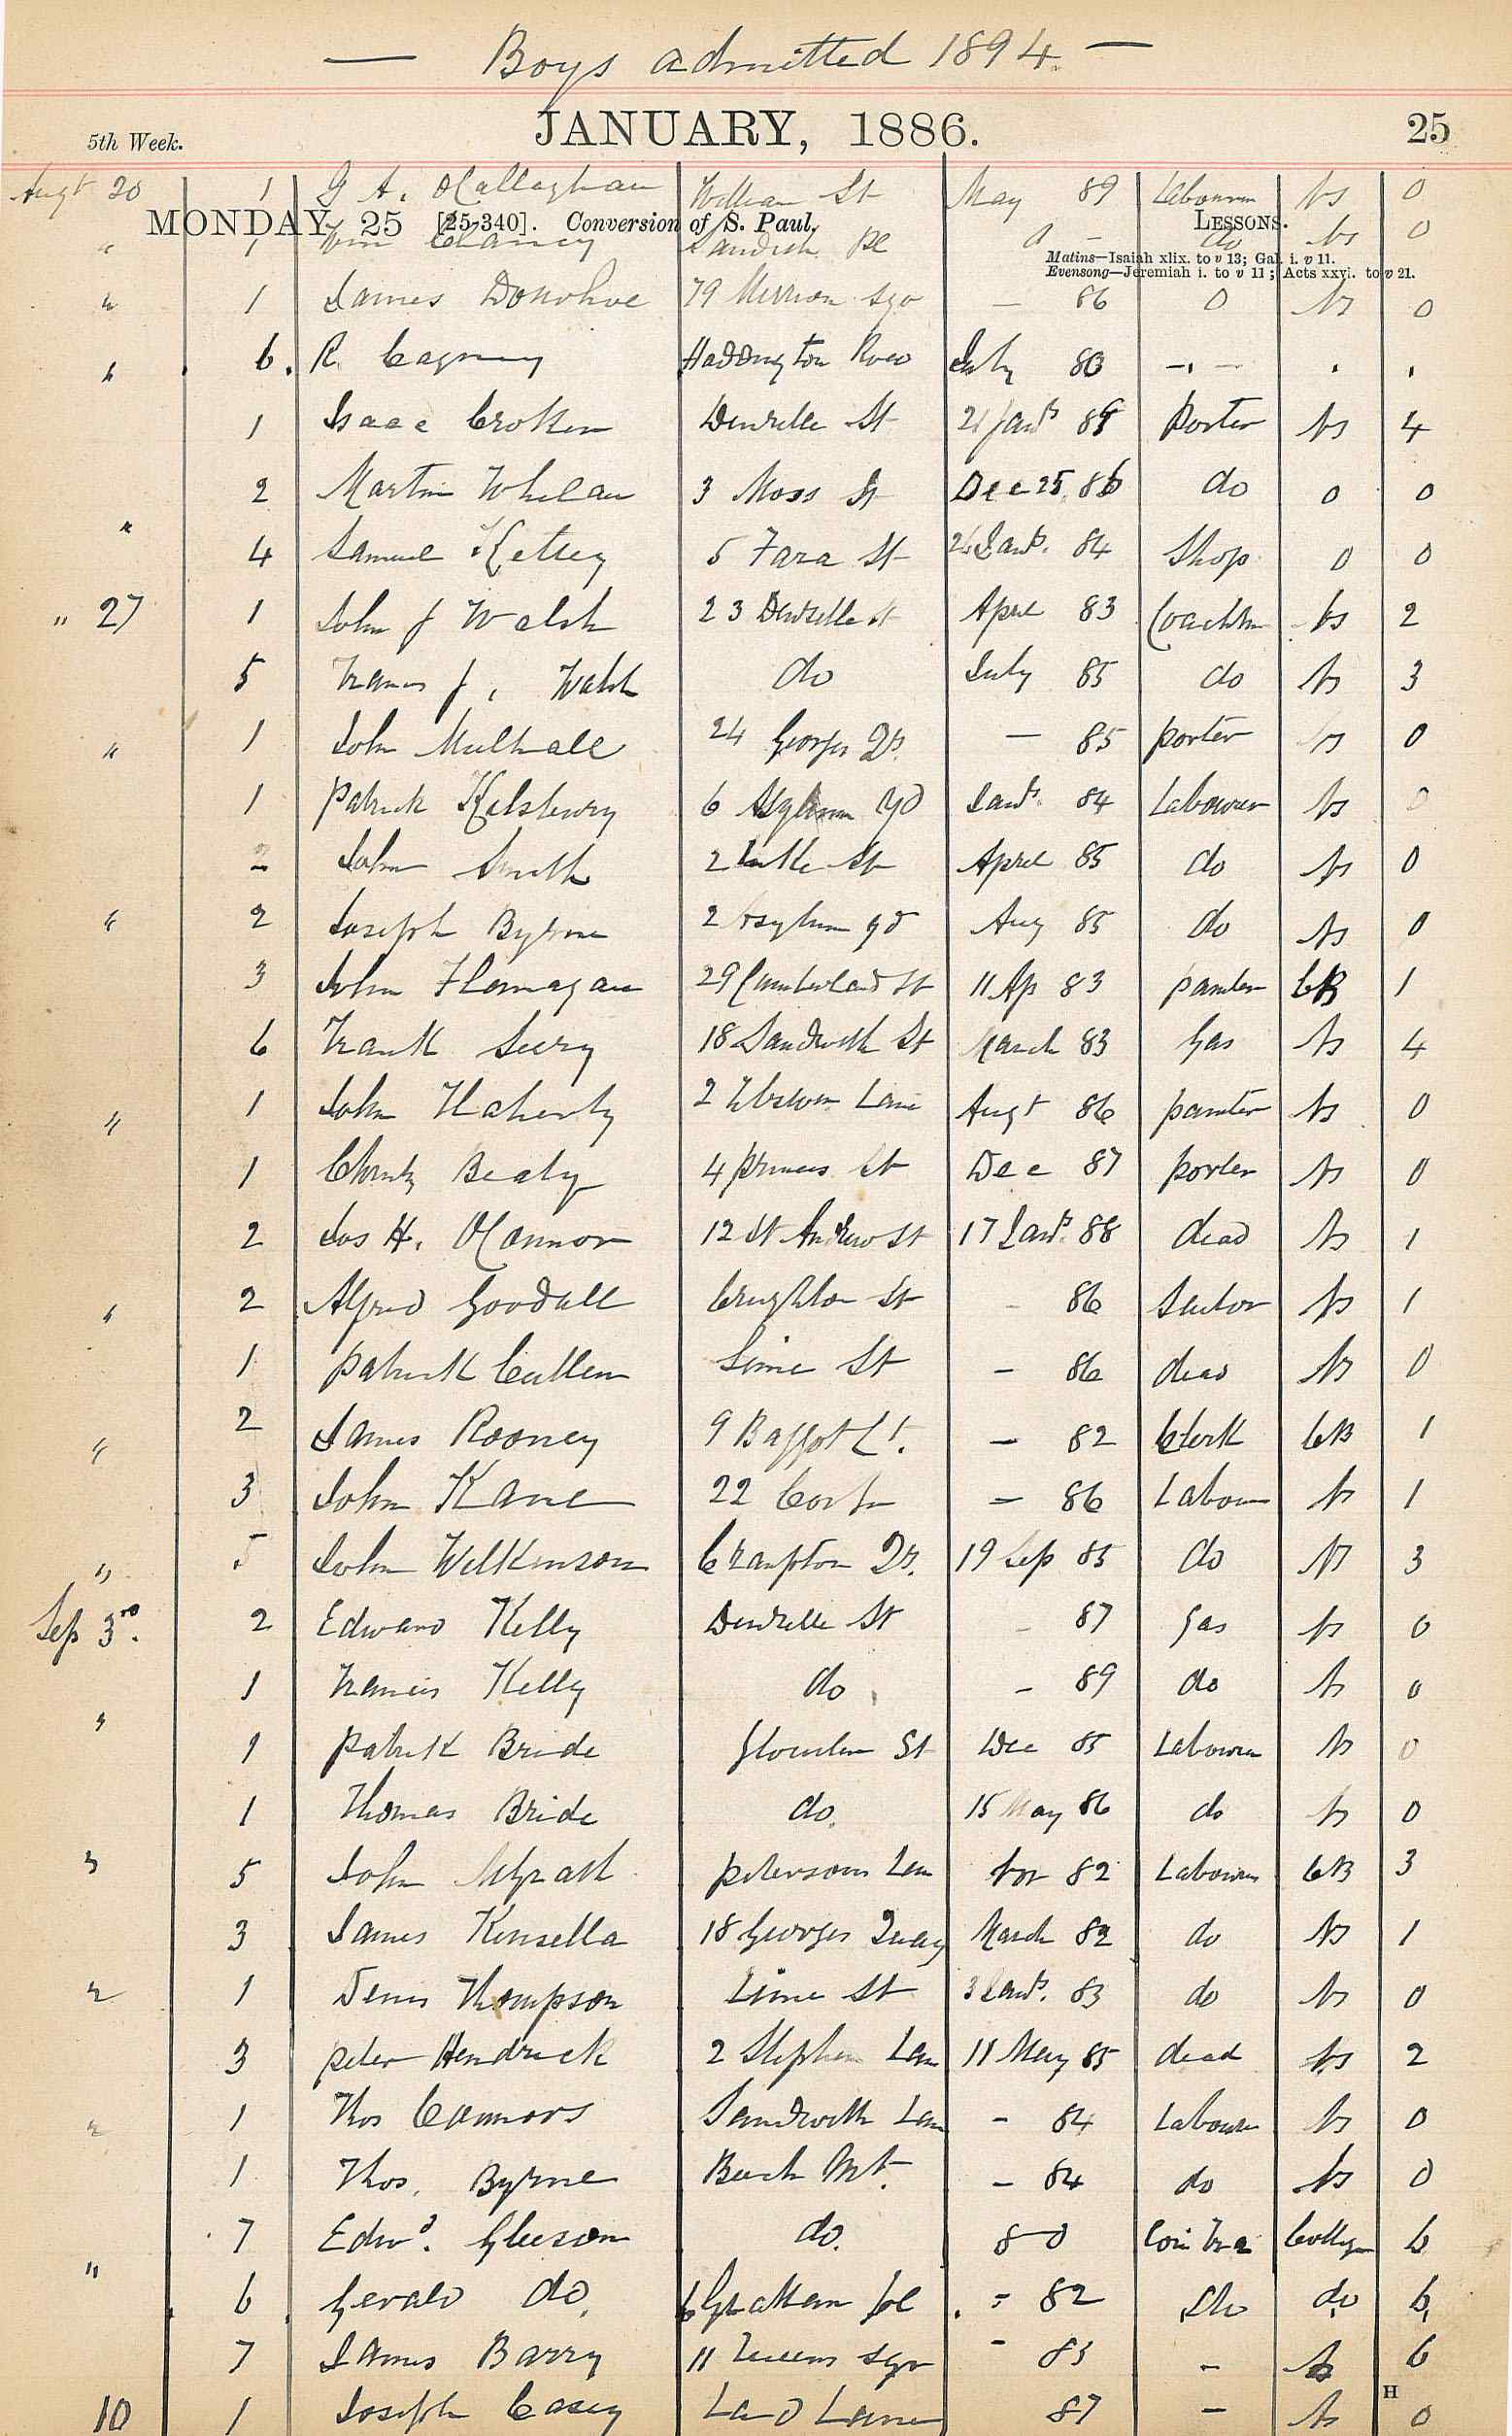 — Boys admitted 1894. —
5th Week. JANUARY, 1886. 25
Augt 20 1 G A. O'Callaghan William St May 89 Labourer Ns 0
MONDAY 25 [25-340]. Conversion of S. Paul. LESSONS.
" 1 Wm Clancy Sandwith Pl 0 - do Ns 0
Matins—Isaiah xlix. to v 13; Gal. i. v 11.
Evensong—Jeremiah i. to v 11; Acts xxvi. to v 21.
" 1 James Donohoe 79 Merrion Sqr — 86 0 Ns 0
" 6. R. Cagney Haddington Road July 80 - . - . .
1 Isaac Croker Denzille St 21 Jany 88 Porter Ns 4
2 Martin Whelan 3 Moss St Dec 25. 86 do 0 0
" 4 Samuel Kelsey 5 Tara St Jany. 84 Shop 0 0
" 27 1 John J Walsh 23 Denzille St April 83 Coachm Ns 2
5 Francis J. Walsh do July 85 do Ns 3
" 1 John Mulhall 24 Georges Qy. — 85 porter Ns 0
1 Patrick Kilsbury 6 Asylum Yd Jany. 84 Labourer Ns 0
2 John Smith 2 St April 85 do Ns 0
" 2 Joseph Byrne 2 Asylum yd Aug 85 do Ns 0
3 John Flannagan 29 Cumberland St 11 Ap 83 painter CB 1
6 Frank Seery 18 Sandwith St March 83 Gas Ns 4
" 1 John Flaherty 2 Lane Augt 86 painter Ns 0
1 Christy Bealy 4 Princes St Dec 87 porter Ns 0
2 Jos H. O'Connor 12 St Andrew St 17 Jany. 88 dead Ns 1
" 2 Alfred Goodall Creighton St - 86 Sailor Ns 1
1 Patrick Cullen Lime St - 86 dead Ns 0
" 2 James Rooney 9 Baggot Ct. — 82 Clerk CB 1
3 John Kane 22 — 86 Labour Ns 1
" 5 John Wilkinson Crampton Qy. 19 Sep 85 do Ns 3
Sep 3rd. 2 Edward Kelly Denzille St - 87 Gas Ns 0
1 Francis Kelly do - 89 do Ns 0
" 1 Patrick Bride Gloucester St Dec 85 Labourer Ns 0
1 Thomas Bride do. 15 May 86 do Ns 0
" 5 John McGrath Petersons Lan Nov 82 Labourer CB 3
3 James Kinsella 18 Georges Quay March 82 do Ns 1
" 1 Denis Thompson Lime St 3 Jany. 83 do Ns 0
3 Peter Hendrick 2 Stephen Lan 11 May 85 dead Ns 2
" 1 Thos Connors Sandwith Lan - 84 Labourer Ns 0
1 Thos. Byrne Bach Mt. - 84 do Ns 0
7 Edwd. Gleeson do. 80 College 6
" 6 Gerald do. 6 Grattan Pl. - 82 do do 6
7 James Barry 11 Queens Sqr - 83 - Ns 6
10 1 Joseph Casey Lad Lane 87 - Ns 0
H